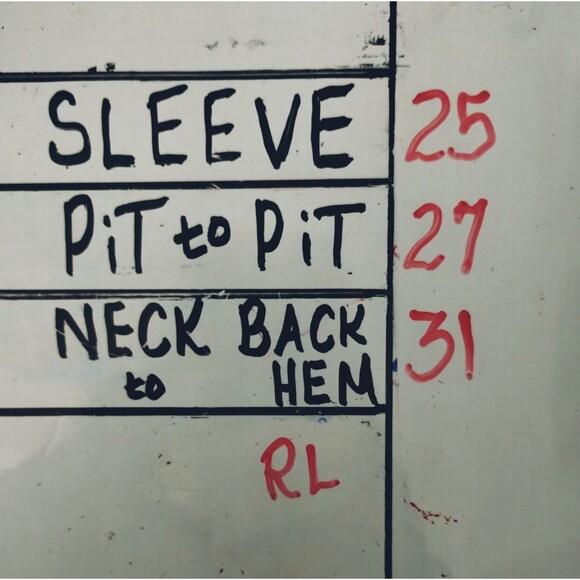 SLEEVE 25
PiT to PiT 27
NECK BACK 31
to HEM
RL